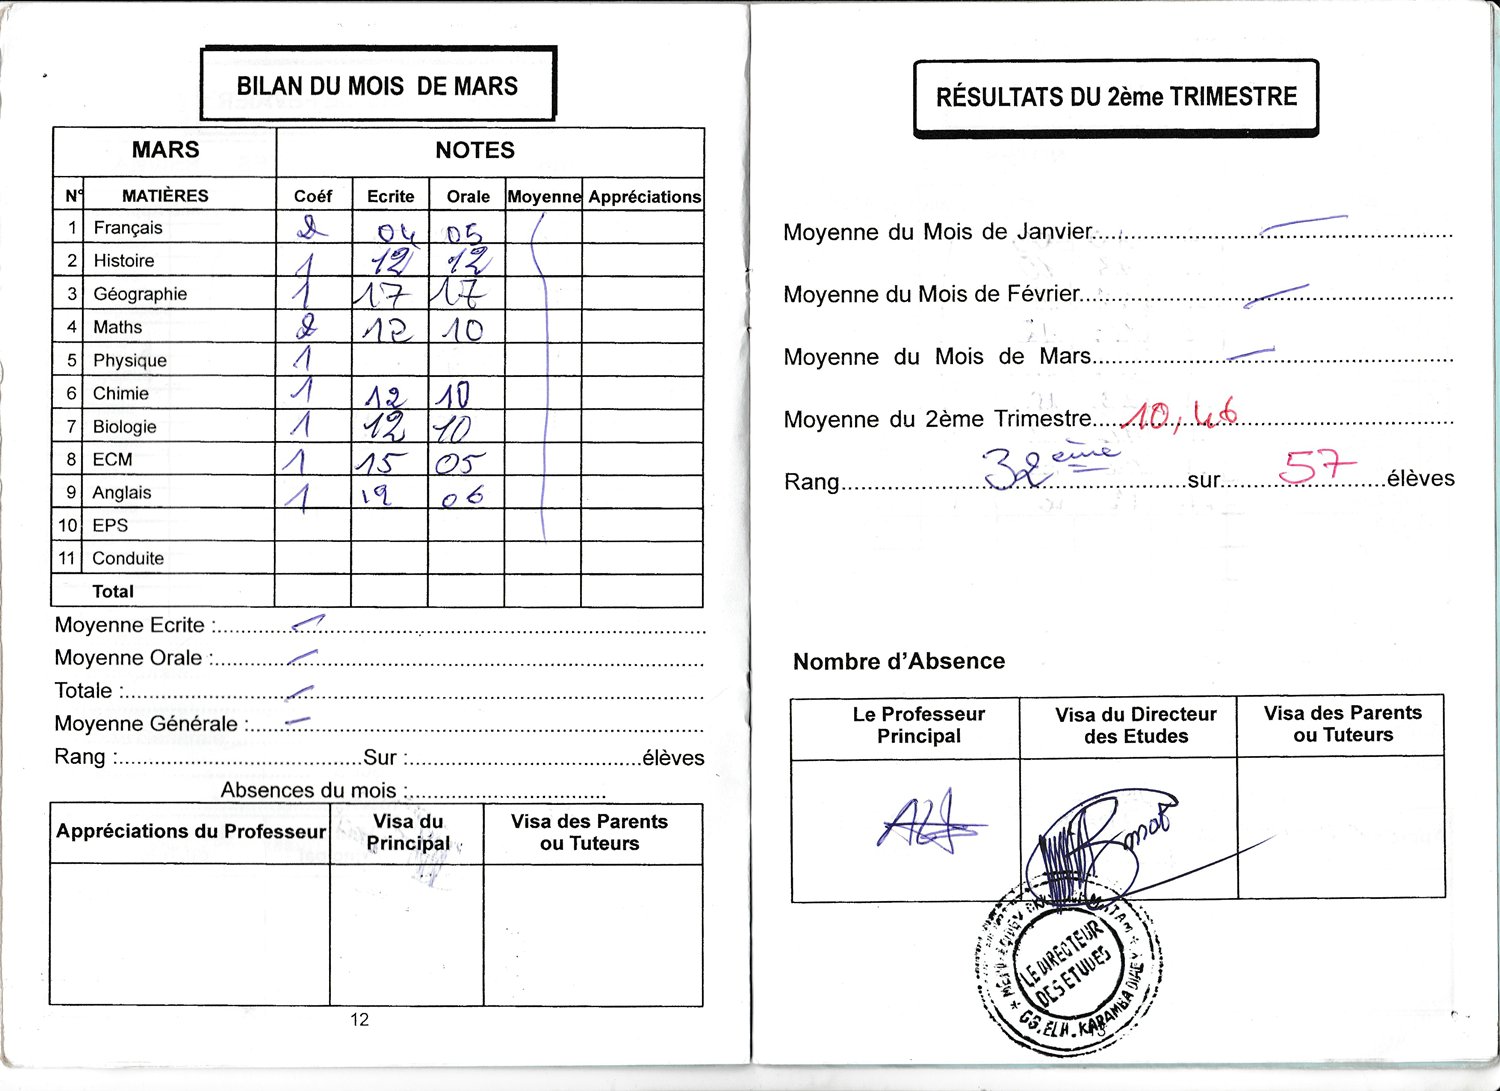 BILAN DU MOIS DE MARS
MARS NOTES
N° MATIÈRES Coéf Ecrite Orale Moyenne Appréciations
1 Français 2 04 05
2 Histoire 1 12 12
3 Géographie 1 17 17
4 Maths 2 12 10
5 Physique 1
6 Chimie 1 12 10
7 Biologie 1 12 10
8 ECM 1 15 05
9 Anglais 1 12 06
10 EPS
11 Conduite
Total
Moyenne Ecrite :
Moyenne Orale :
Totale :
Moyenne Générale :
Rang : Sur : élèves
Absences du mois :
Appréciations du Professeur Visa du Principal Visa des Parents ou Tuteurs
12
RÉSULTATS DU 2ème TRIMESTRE
Moyenne du Mois de Janvier
Moyenne du Mois de Février
Moyenne du Mois de Mars
Moyenne du 2ème Trimestre 10,46
Rang 32ème sur 57 élèves
Nombre d'Absence
Le Professeur Principal Visa du Directeur des Etudes Visa des Parents ou Tuteurs
LE DIRECTEUR
DES ETUDES
MATAM
GS.ELH.KARAMBA